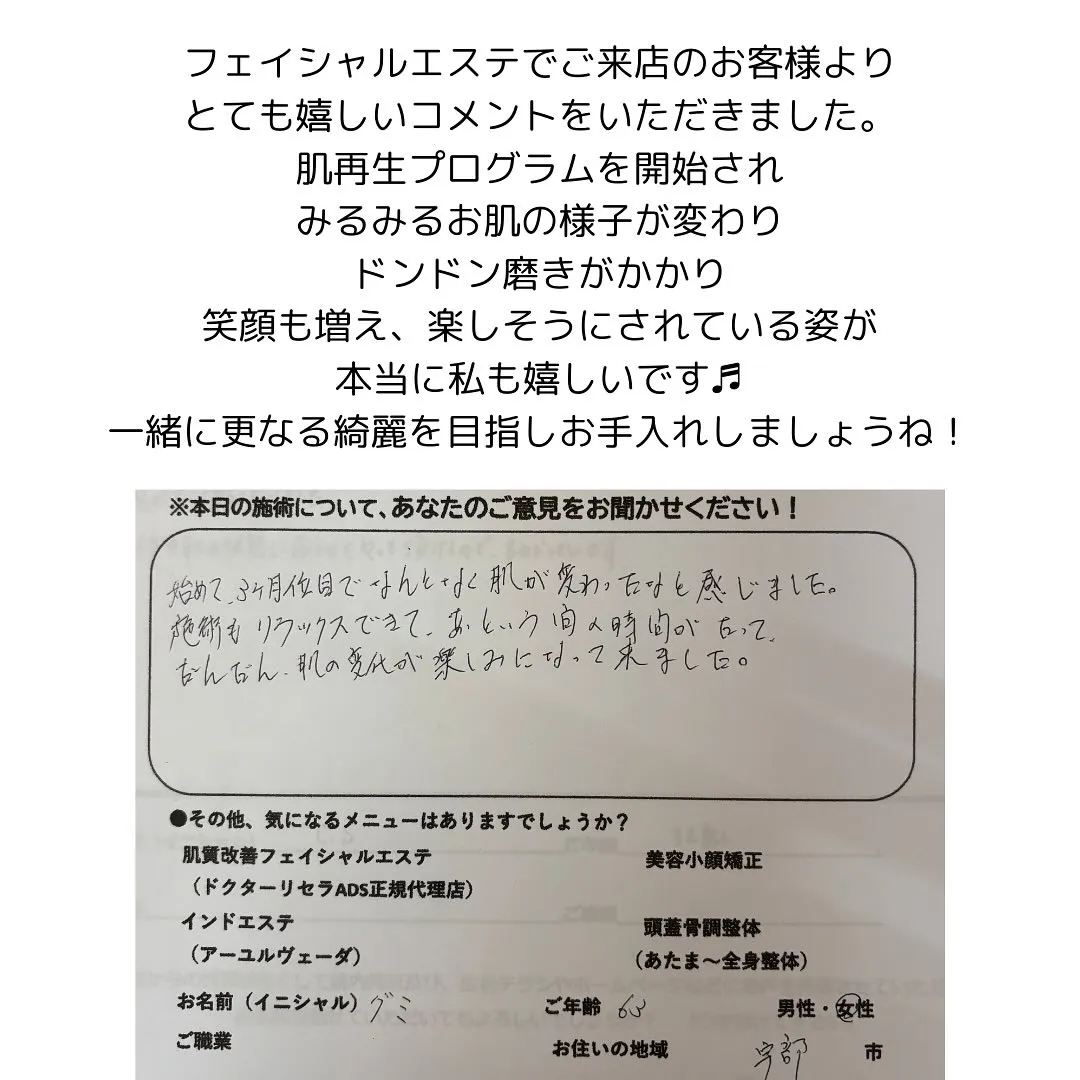 フェイシャルエステでご来店のお客様より
とても嬉しいコメントをいただきました。
肌再生プログラムを開始され
みるみるお肌の様子が変わり
ドンドン磨きがかかり
笑顔も増え、楽しそうにされている姿が
本当に私も嬉しいです♬
一緒に更なる綺麗を目指しお手入れしましょうね！
※本日の施術について、あなたのご意見をお聞かせください！
始めて、3ヶ月位目でなんとなく肌が変わったなと感じました。
施術もリラックスできて、あという間の時間がたって、
だんだん、肌の変化が楽しみになって来ました。
●その他、気になるメニューはありますでしょうか？
肌質改善フェイシャルエステ 美容小顔矯正
（ドクターリセラADS正規代理店）
インドエステ 頭蓋骨調整体
（アーユルヴェーダ） （あたま～全身整体）
お名前（イニシャル）グミ ご年齢 63 男性・女性
ご職業 お住いの地域 宇部 市